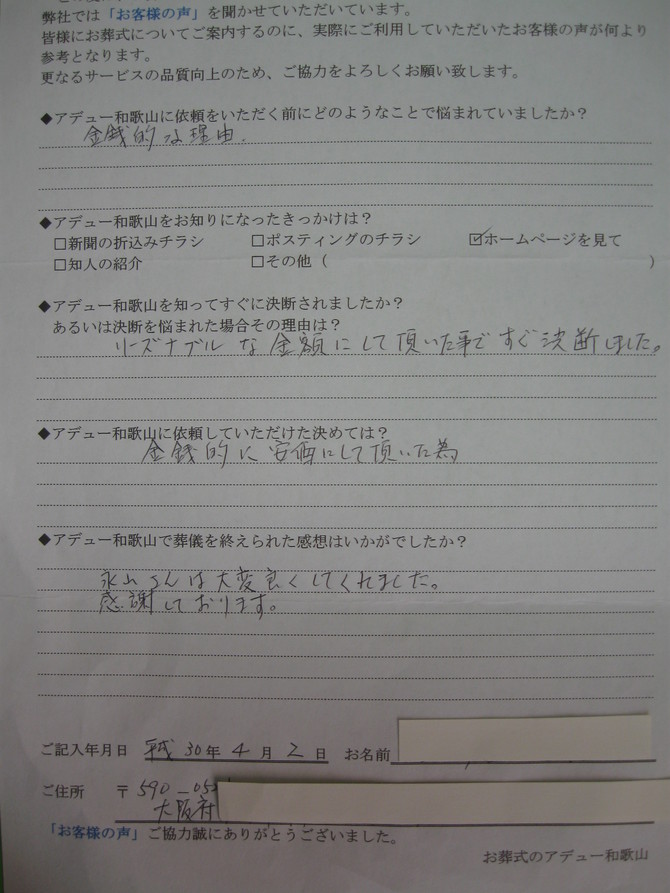 弊社では「お客様の声」を聞かせていただいています。
皆様にお葬式についてご案内するのに、実際にご利用していただいたお客様の声が何より
参考となります。
更なるサービスの品質向上のため、ご協力をよろしくお願い致します。
◆アデュー和歌山に依頼をいただく前にどのようなことで悩まれていましたか？
金銭的な理由.
◆アデュー和歌山をお知りになったきっかけは？
□新聞の折込みチラシ □ポスティングのチラシ ☑ホームページを見て
□知人の紹介 □その他（ ）
◆アデュー和歌山を知ってすぐに決断されましたか？
あるいは決断を悩まれた場合その理由は？
リーズナブルな金額にして頂いた事ですぐ決断しました。
◆アデュー和歌山に依頼していただけた決めては？
金銭的に安価にして頂いた為
◆アデュー和歌山で葬儀を終えられた感想はいかがでしたか？
永山さんは大変良くしてくれました。
感謝しております。
ご記入年月日 平成 30年 4月 2日 お名前
ご住所 〒590-05
大阪府
「お客様の声」ご協力誠にありがとうございました。
お葬式のアデュー和歌山